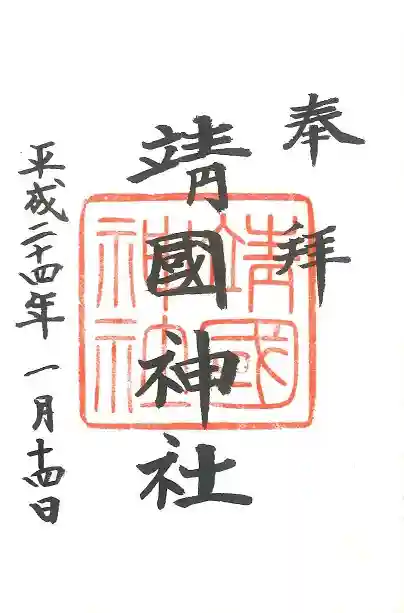 奉拝
靖國神社
靖國
神社
平成二十四年一月十四日